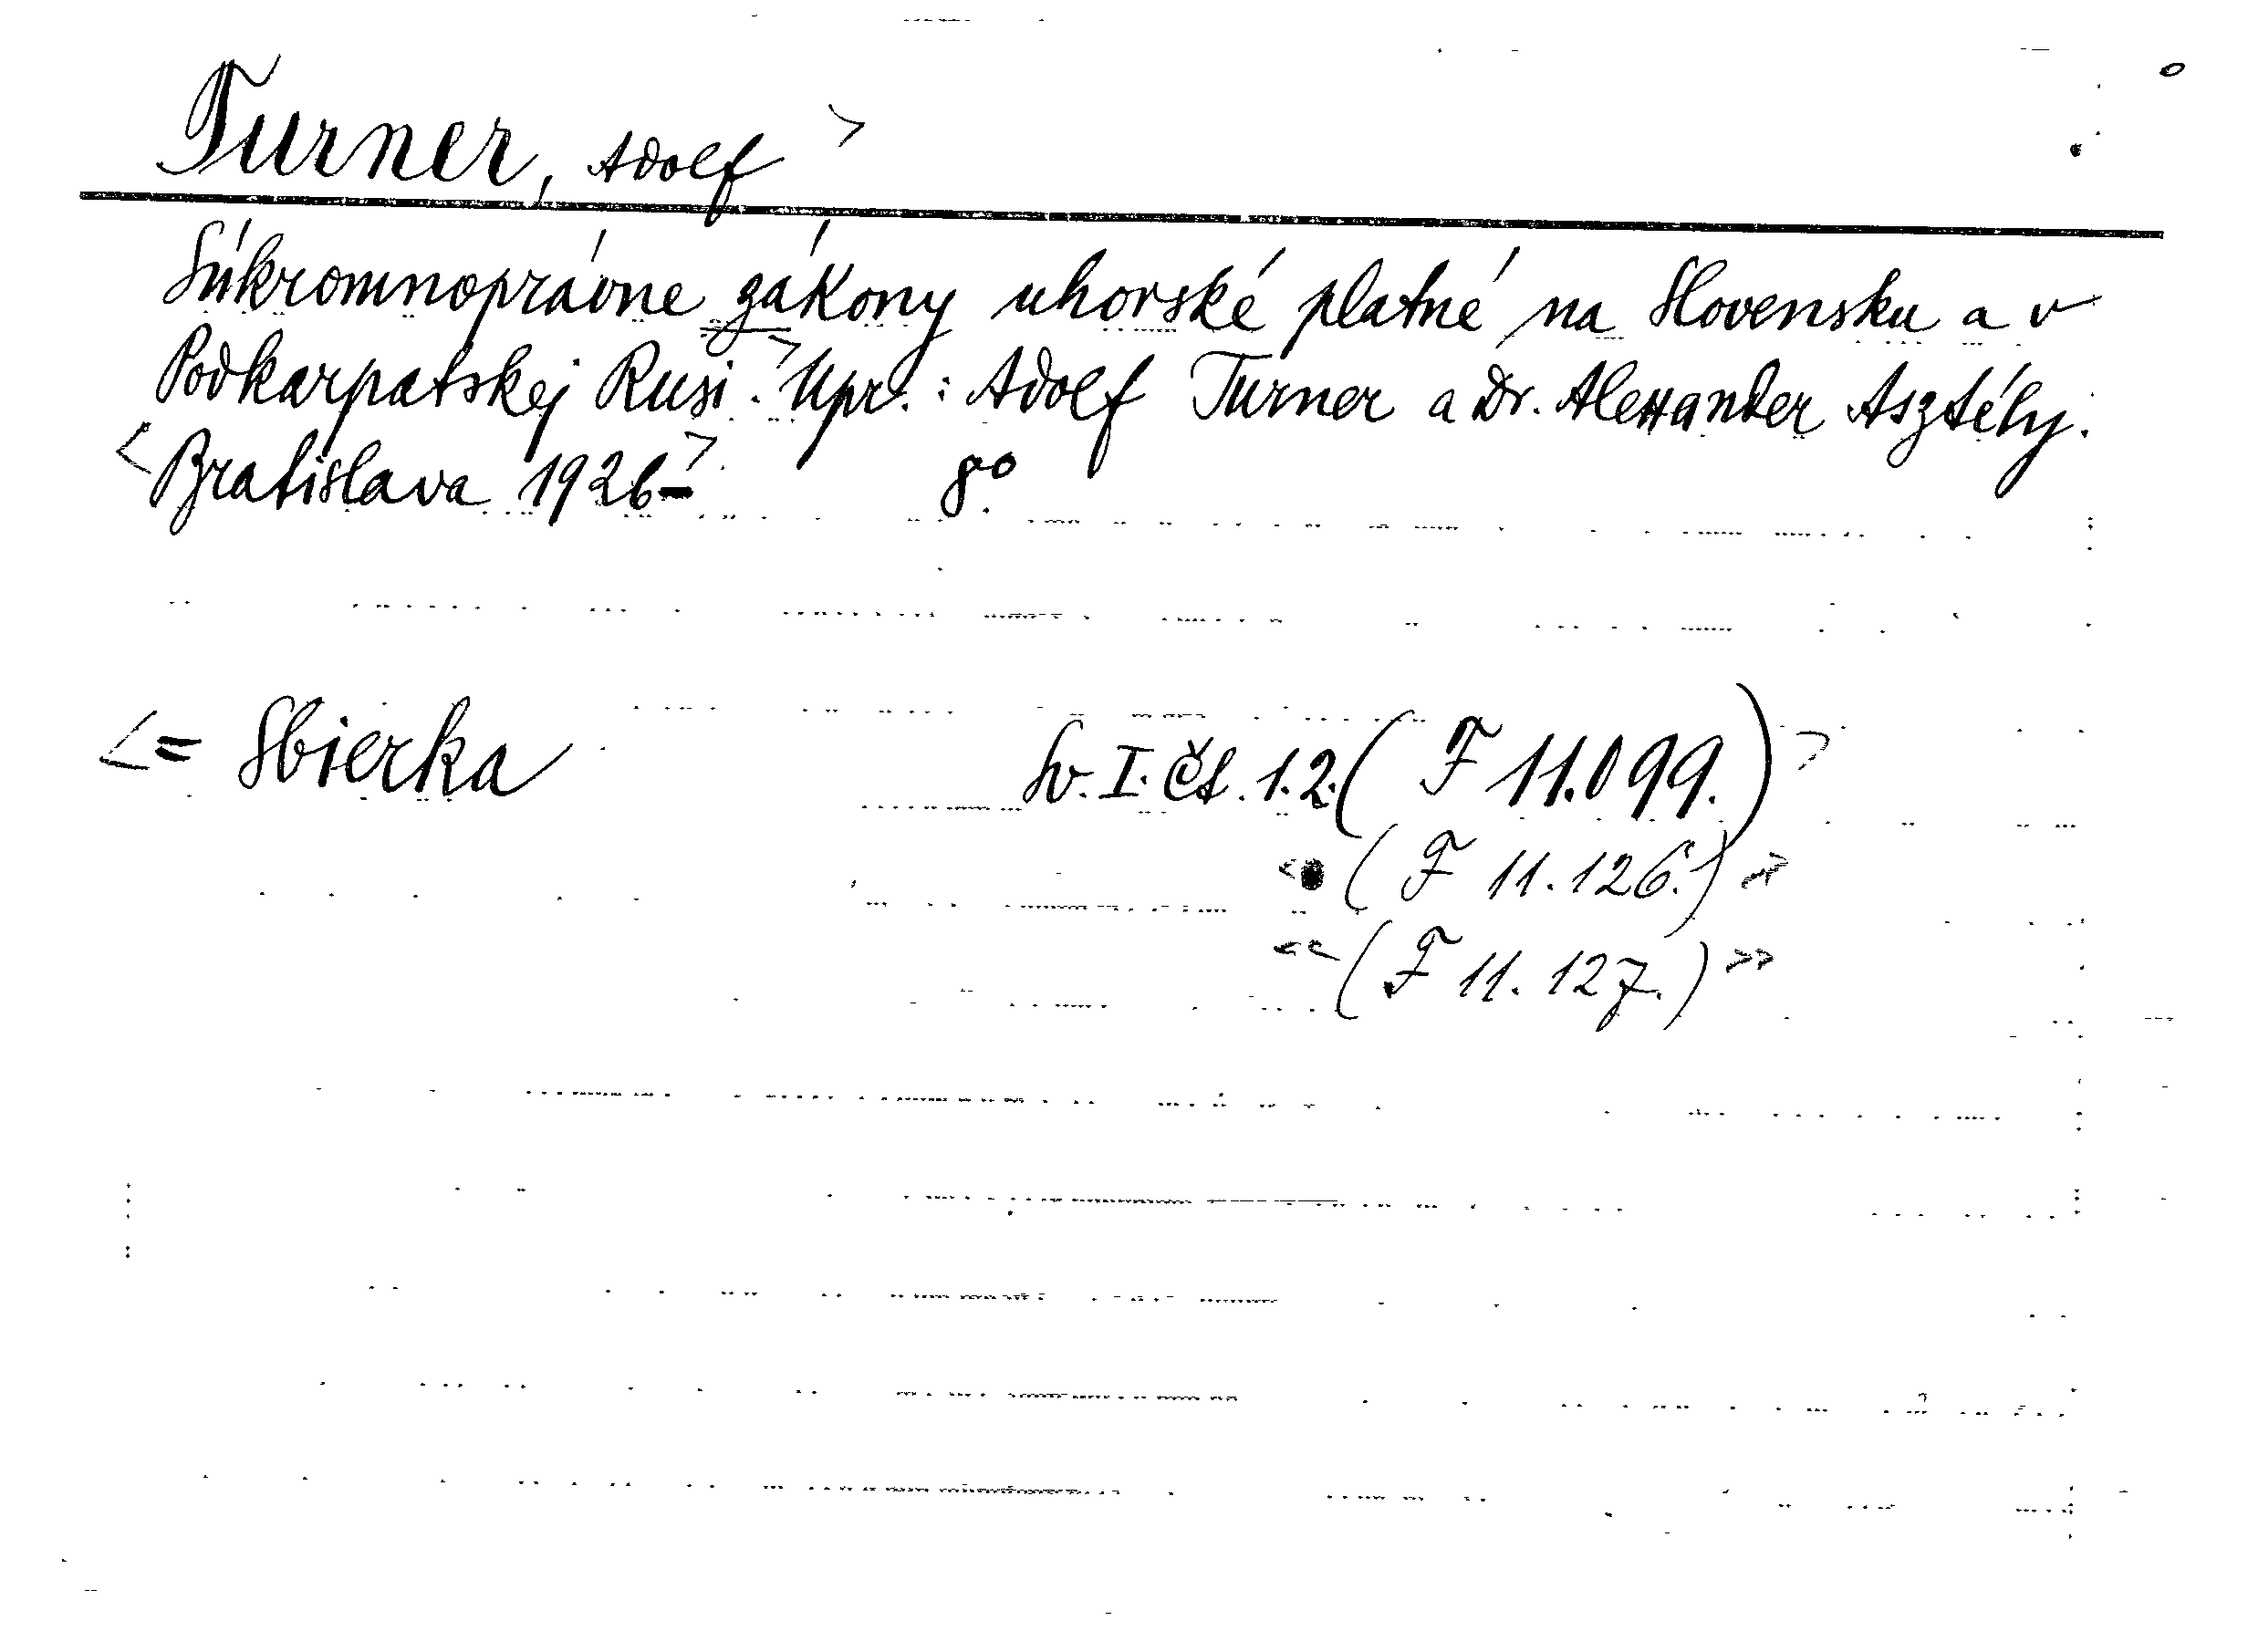 Turner, Adolf >
Súkromnoprávne zákony uhorské platné na Slovensku a v
Podkarpatskej Rusi.> Upr.: Adolf Turner a Dr. Alexander Asztély.
<Bratislava 1926-> 8°.
<= Sbierka Sv. I. čs. 1.2. (F 11.099.) >
(F 11.126.) »
«(F 11.127.) »